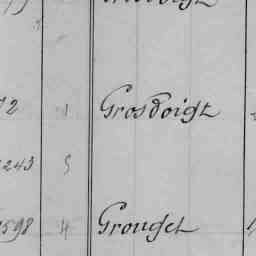 72 1 Grosdoigt
243 5
598 4 Grouget